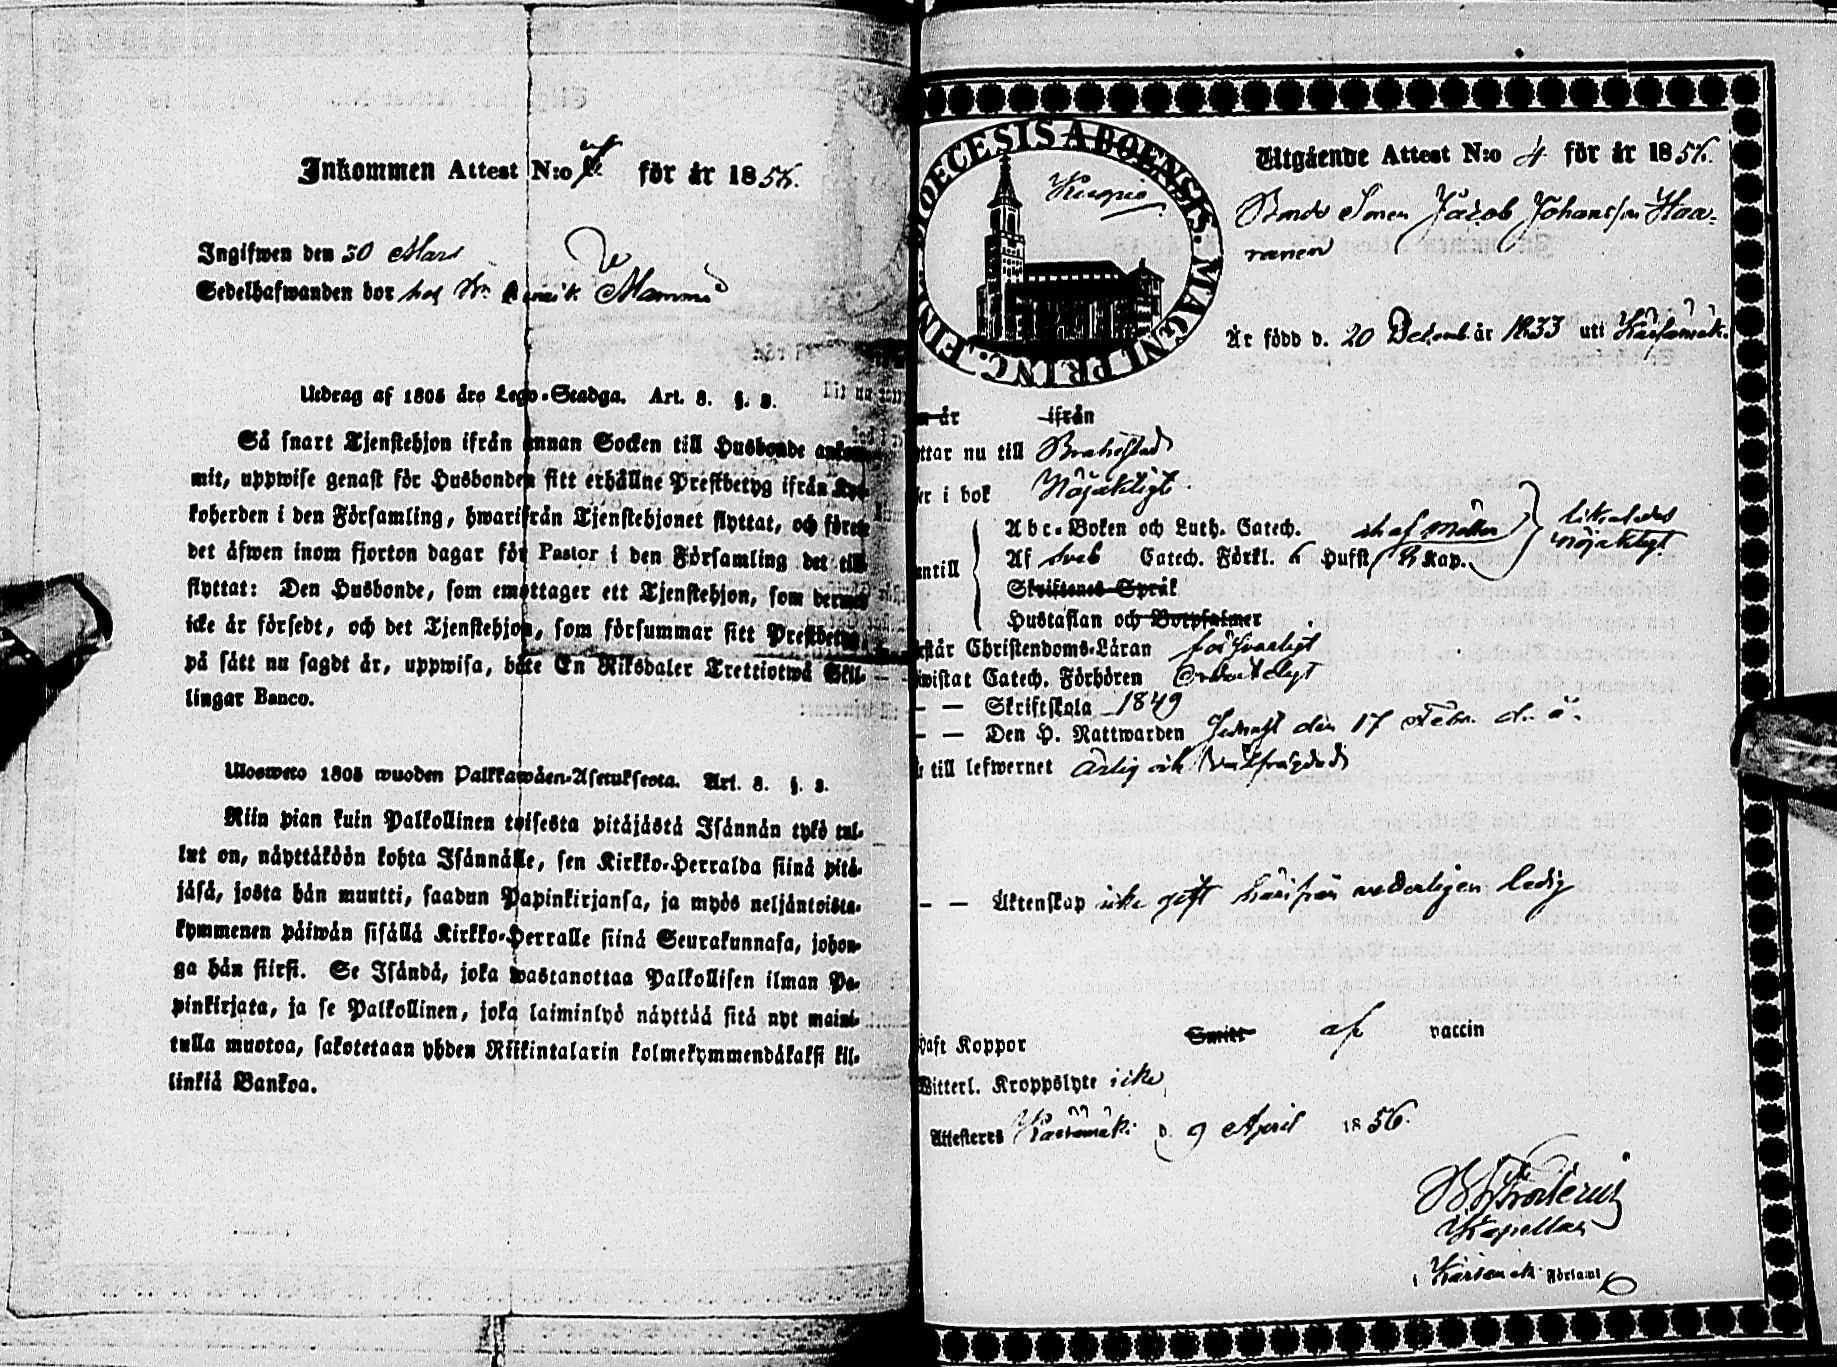 Inkommen Attest N:o för år 1856.
Ingifwen den 30 Mars
Sedelhafwanden bor hos Hr. Henrik
Utdrag af 1805 års Lego-Stadga. Art. 3. §. 3.
Så snart Tjenstehjon ifrån annan Socken till Husbonde ankom-
mit, uppwise genast för Husbonden sitt erhållne Prestbetyg ifrån Kyr-
koherden i den Församling, hwarifrån Tjenstehjonet flyttat, och förete
det äfwen inom fjorton dagar för Pastor i den Församling det till
flyttat: Den Husbonde, som emottager ett Tjenstehjon, som dermed
icke är försedt, och det Tjenstehjon, som försummar sitt Prestbetyg
på sätt nu sagdt är, uppwisa, böte En Riksdaler Trettiotwå Skil-
lingar Banco.
Ulosweto 1805 wuoden Palkkawäen-Asetuksesta. Art. 3. §. 3.
Niin pian kuin Palkollinen toisesta pitäjästä Isännän tykö tul-
lut on, näyttäköön kohta Isännälle, sen Kirkko-Herralda siinä pitä-
jäsä, josta hän muutti, saadun Papinkirjansa, ja myös neljäntoista-
kymmenen päiwän sisällä Kirkko-Herralle siinä Seurakunnasa, johon-
ga hän siirsi. Se Isändä, joka wastanottaa Palkollisen ilman Pa-
pinkirjata, ja se Palkollinen, joka laiminlyö näyttää sitä nyt maini-
tulla muotoa, sakotetaan yhden Riikintalarin kolmekymmendäkaksi kil-
linkiä Bankoa.
DIOECESIS ABOENSIS. MAGNI PRINC. FIN
Kuopio
Utgående Attest N:o 4 för år 1856.
Bonde Sonen Jacob Johansson Haa-
ranen
Är född d. 20 Decemb. år 1833 uti Kärsämäki.
år ifrån
ttar nu till Brahestad
er i bok Nöjaktigt.
Abc-Boken och Luth. Catech.
Af Sveb Catech. Förkl. 6 Hufst. Kap.
likaledes
nöjaktigt
ntill
Skriftenes Språk
Hustaflan och Botpsalmer
står Christendoms-Läran försvarligt
wistat Catech. Förhören Ordentligt
— — Skriftskola 1849
— — Den H. Nattwarden Senast den 17 Febr. d. å.
till lefwernet ärlig och välfrägdad
— — Äktenskap icke gift härifrån vederligen ledig
haft Koppor Smitt af vaccin
Witterl. Kroppslyte icke
Attesteres Kärsämäki d. 9 April 1856.
Kapellan
i Kärsämäki Församl.